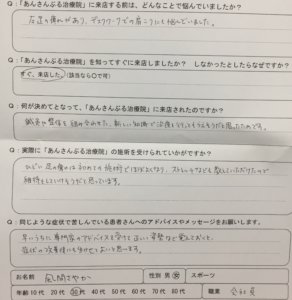 Q:「あんさんぶる治療院」に来店する前は、どんなことで悩んでいましたか？
左足の痺れがあり、デスクワークでの肩こりにも悩んでいました。
Q:「あんさんぶる治療院」を知ってすぐに来店しましたか？ しなかったとしたらなぜですか？
すぐ、来店した。(該当なら○で可)
Q: 何が決めてとなって、「あんさんぶる治療院」に来店されたのですか？
鍼灸と整体を組み合わせた、新しい知識で治療して
もらえそうだと思ったためです。
Q: 実際に「あんさんぶる治療院」の施術を受けられていかがですか？
ひどい足の痺れは
の施術でほぼなくなり、ストレッチなども教えていただけたので
維持をしていけそうだと思っています。
Q: 同じような症状で苦しんでいる患者さんへのアドバイスやメッセージをお願いします。
早いうちに専門家のアドバイスを受けて正しい姿勢など覚えておくと、
症状の改善後にも生かせて良いと思います。
お名前 風間さやか 性別 男 女 スポーツ
年齢 10代 20代 30代 40代 50代 60代 70代 80代 職業 会社員